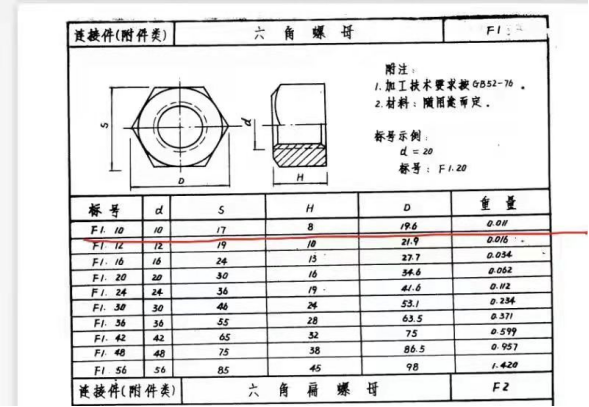 连接件(附件类) 六角螺母 F1
附注:
1.加工技术要求按GB52-76。
2.材料:随用途而定。
标号示例:
d=20
标号:F1.20
S
d
D
H
标号 d S H D 重量
F1.10 10 17 8 19.6 0.011
F1.12 12 19 10 21.9 0.016
F1.16 16 24 13 27.7 0.034
F1.20 20 30 16 34.6 0.062
F1.24 24 36 19 41.6 0.112
F1.30 30 46 24 53.1 0.234
F1.36 36 55 28 63.5 0.371
F1.42 42 65 32 75 0.599
F1.48 48 75 38 86.5 0.957
F1.56 56 85 45 98 1.420
连接件(附件类) 六角扁螺母 F2